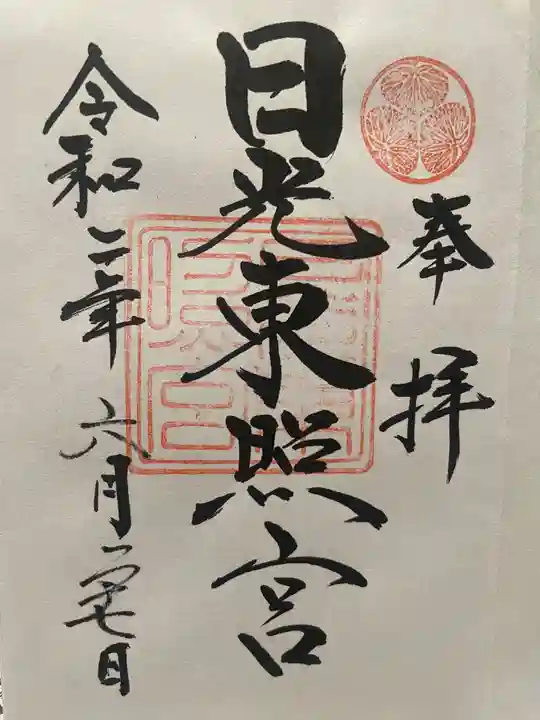 奉拝
日光東照宮
令和二年六月二十七日